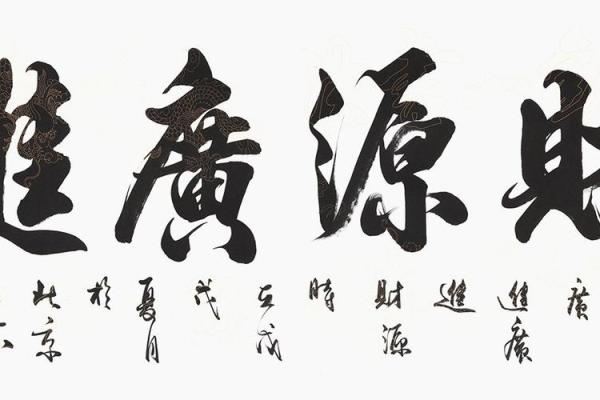 財源廣進
廣進廣進財源時在戊戌夏月於北京